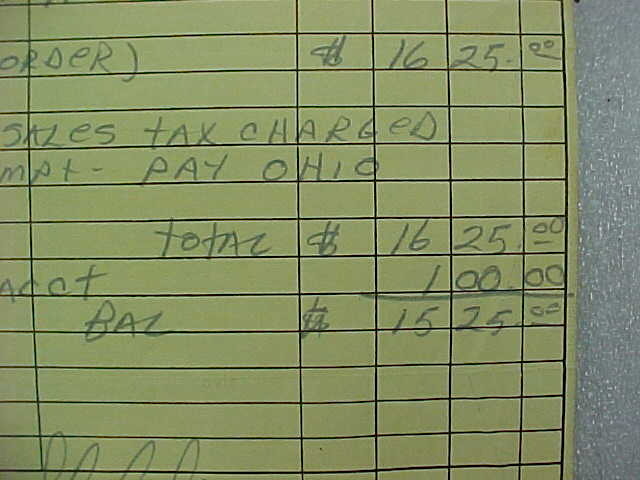 ORDER) $ 1625.00
SALES TAX CHARGED
mpt- PAY OHIO
TOTAL $ 1625.00
Acct 100.00
BAL $ 1525.00